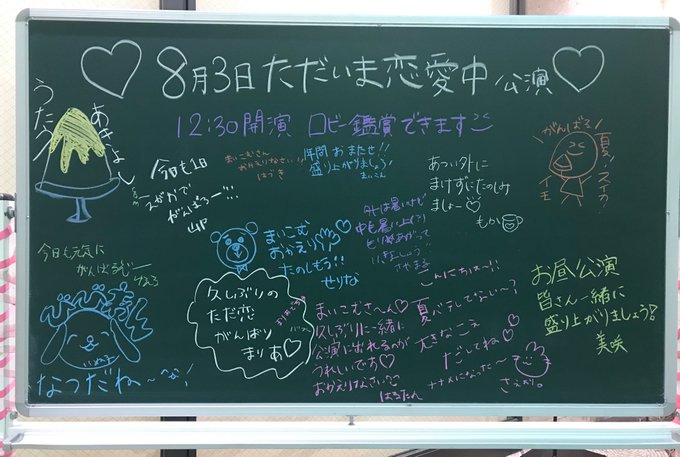 ♡8月3日ただいま恋愛中公演♡
12:30開演 ロビー鑑賞できます
あきよし
うたカ
今日も1日
えがおで
がんばろー!!!
まいこむさん
おかえりなさい!!
はづき
1年間おまたせ!!
盛り上がりましょう!
まいこん
あつい外に
まけずにたのしみ
ましょー♡
もか
がんばろ!
夏!スイカ!
イモ
今日も元気に
がんばるぞー
まいこむ
おかえり♡
たのしもう!!
せりな
外は暑いけど
中も暑い
こんにちはー!!
お昼公演
皆さん一緒に
盛り上がりましょう!
美咲
久しぶりの
ただ恋
がんばり
まりあ♡
なつだねー!
まいこむさーん♡
久しぶりに一緒に
公演に出れるのが
うれしいです♡
おかえりなさい♡
はるたん
夏バテしてない〜?
大きなこえ
だしてね♡
さえかり。